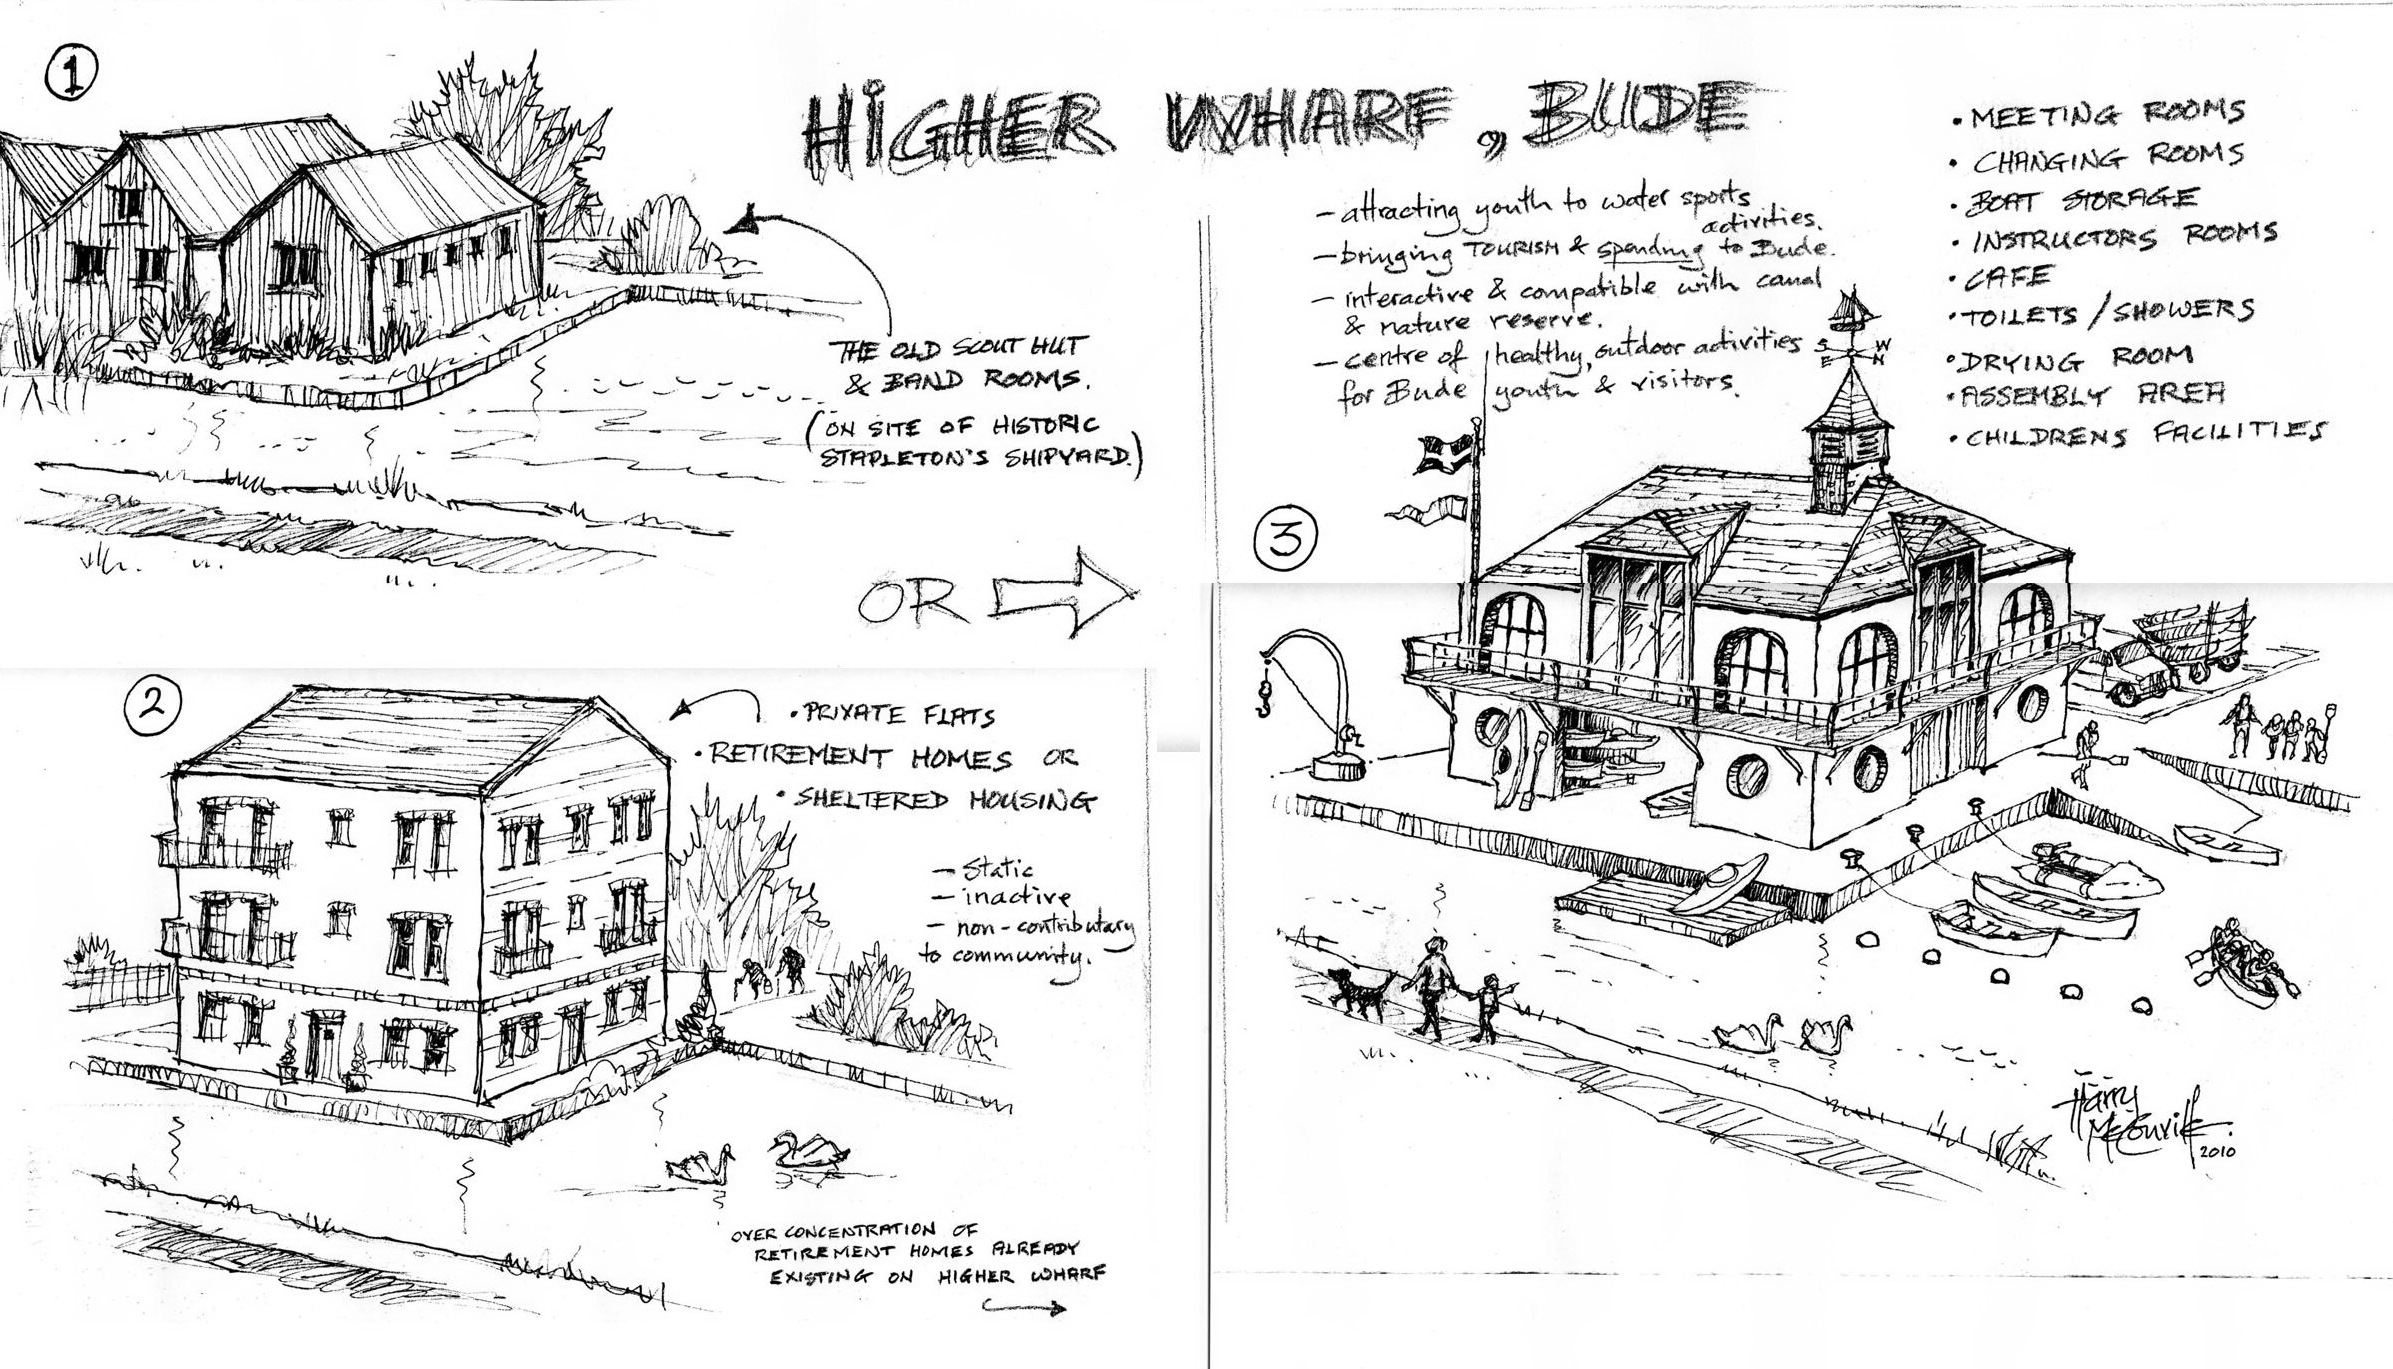 1
HIGHER WHARF, BUDE
THE OLD SCOUT HUT
& BAND ROOMS.
(ON SITE OF HISTORIC
STAPLETON'S SHIPYARD.)
OR
2
• PRIVATE FLATS
• RETIREMENT HOMES OR
• SHELTERED HOUSING
— Static
— inactive
— non-contributary
to community.
OVER CONCENTRATION OF
RETIREMENT HOMES ALREADY
EXISTING ON HIGHER WHARF
— attracting youth to water sports
activities.
— bringing TOURISM & spending to Bude.
— interactive & compatible with canal
& nature reserve.
— centre of healthy, outdoor activities
for Bude youth & visitors.
• MEETING ROOMS
• CHANGING ROOMS
• BOAT STORAGE
• INSTRUCTORS ROOMS
• CAFE
• TOILETS / SHOWERS
• DRYING ROOM
• ASSEMBLY AREA
• CHILDRENS FACILITIES
3
S W
E N
Harry
2010